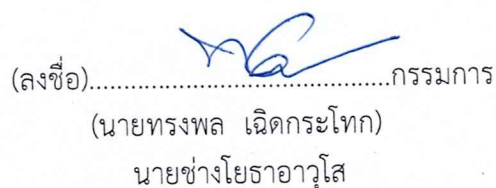 (ลงชื่อ)........................................กรรมการ
(นายทรงพล เฉิดกระโทก)
นายช่างโยธาอาวุโส